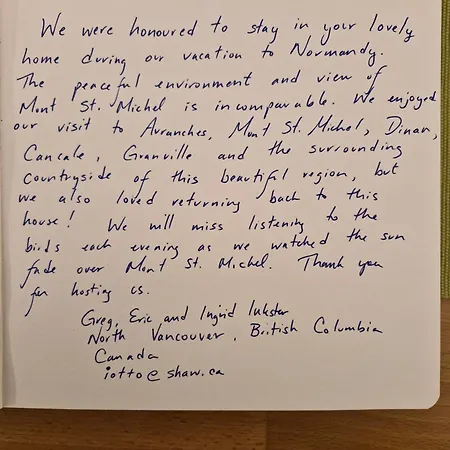 We were honoured to stay in your lovely
home during our vacation to Normandy.
The peaceful environment and view of
Mont St. Michel is incomparable. We enjoyed
our visit to Avranches, Mont St. Michel, Dinan,
Cancale, Granville and the surrounding
countryside of this beautiful region, but
we also loved returning back to this
house! We will miss listening to the
birds each evening as we watched the sun
fade over Mont St. Michel. Thank you
for hosting us.
Greg, Eric and Ingrid Inkster
North Vancouver, British Columbia
Canada
iotto@shaw.ca